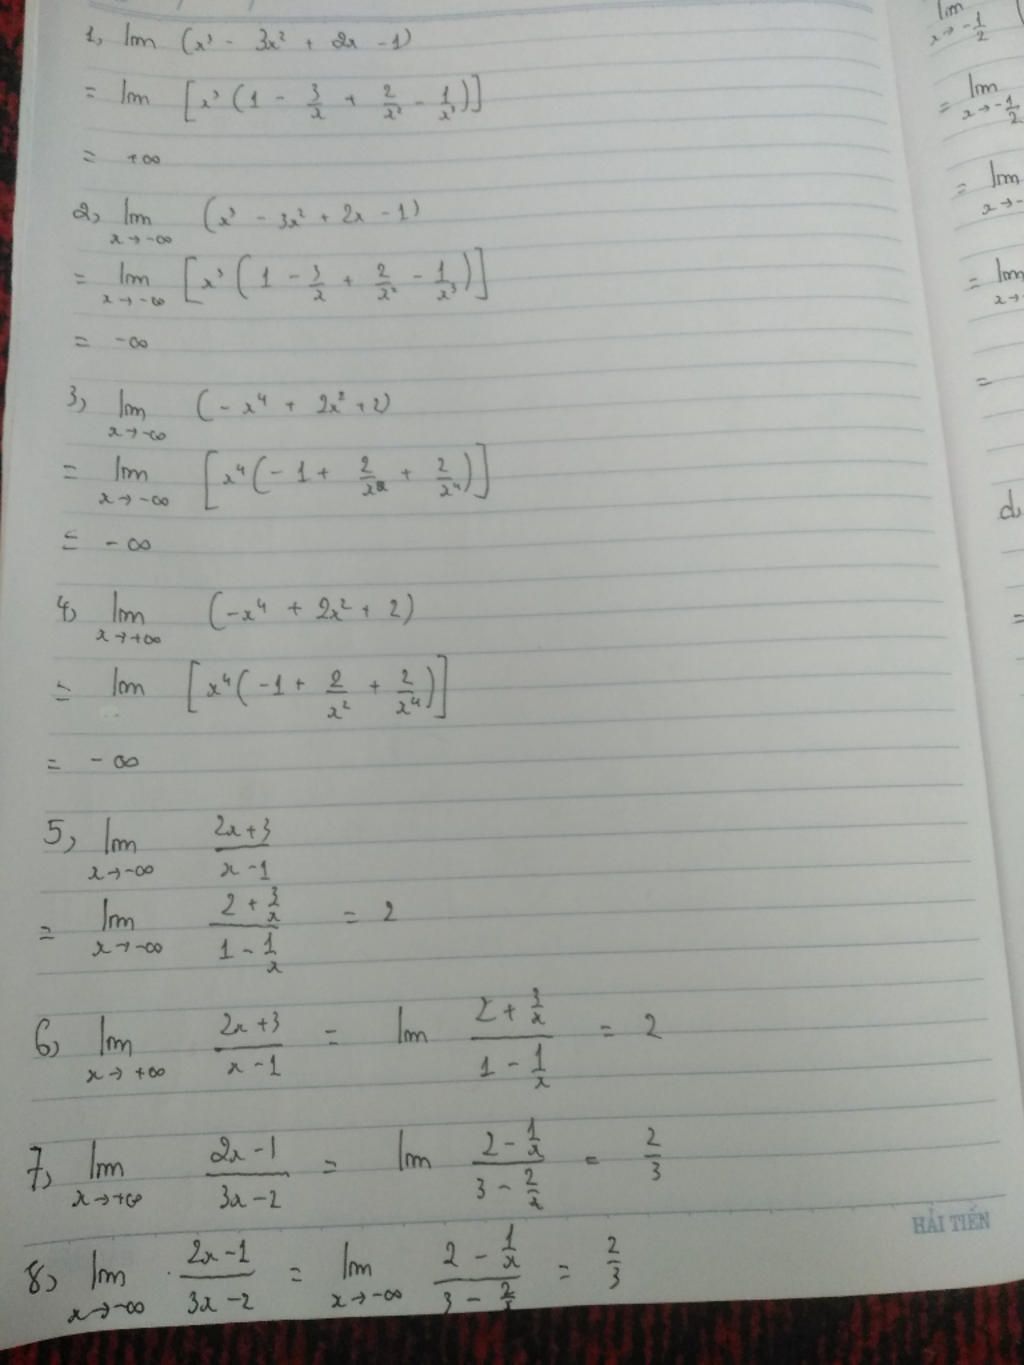 1, lim (x³ - 3x² + 2x - 1)
= lim [x³(1 - 3/x + 2/x² - 1/x³)]
= +∞
2, lim x→-∞ (x³ - 3x² + 2x - 1)
= lim x→-∞ [x³(1 - 3/x + 2/x² - 1/x³)]
= -∞
3, lim x→-∞ (-x⁴ + 2x² + 2)
= lim x→-∞ [x⁴(-1 + 2/x² + 2/x⁴)]
= -∞
4, lim x→+∞ (-x⁴ + 2x² + 2)
= lim [x⁴(-1 + 2/x² + 2/x⁴)]
= -∞
5, lim x→-∞ (2x+3)/(x-1)
= lim x→-∞ (2 + 3/x)/(1 - 1/x) = 2
6, lim x→+∞ (2x+3)/(x-1) = lim (2 + 3/x)/(1 - 1/x) = 2
7, lim x→+∞ (2x-1)/(3x-2) = lim (2 - 1/x)/(3 - 2/x) = 2/3
HẢI TIẾN
8, lim x→-∞ (2x-1)/(3x-2) = lim x→-∞ (2 - 1/x)/(3 - 2/x) = 2/3
lim x→-1/2
= lim x→-1/2
= lim
= lim
=
d,
=